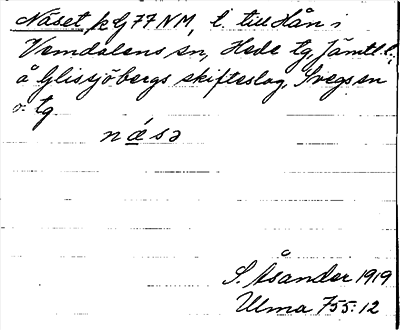 Näset, k G 77 NM, l. till Hån i
Vemdalens sn, Hede tg, Jämtl. l.;
å Glissjöbergs skifteslag, Svegs sn
o. tg
næ´sə
S. Åsander 1919
Ulma 755:12